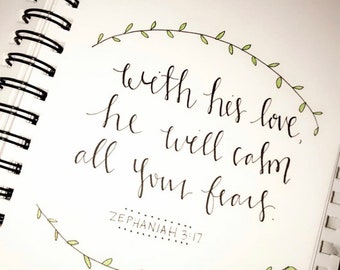 with his love,
he will calm
all your fears.
ZEPHANIAH 3:17